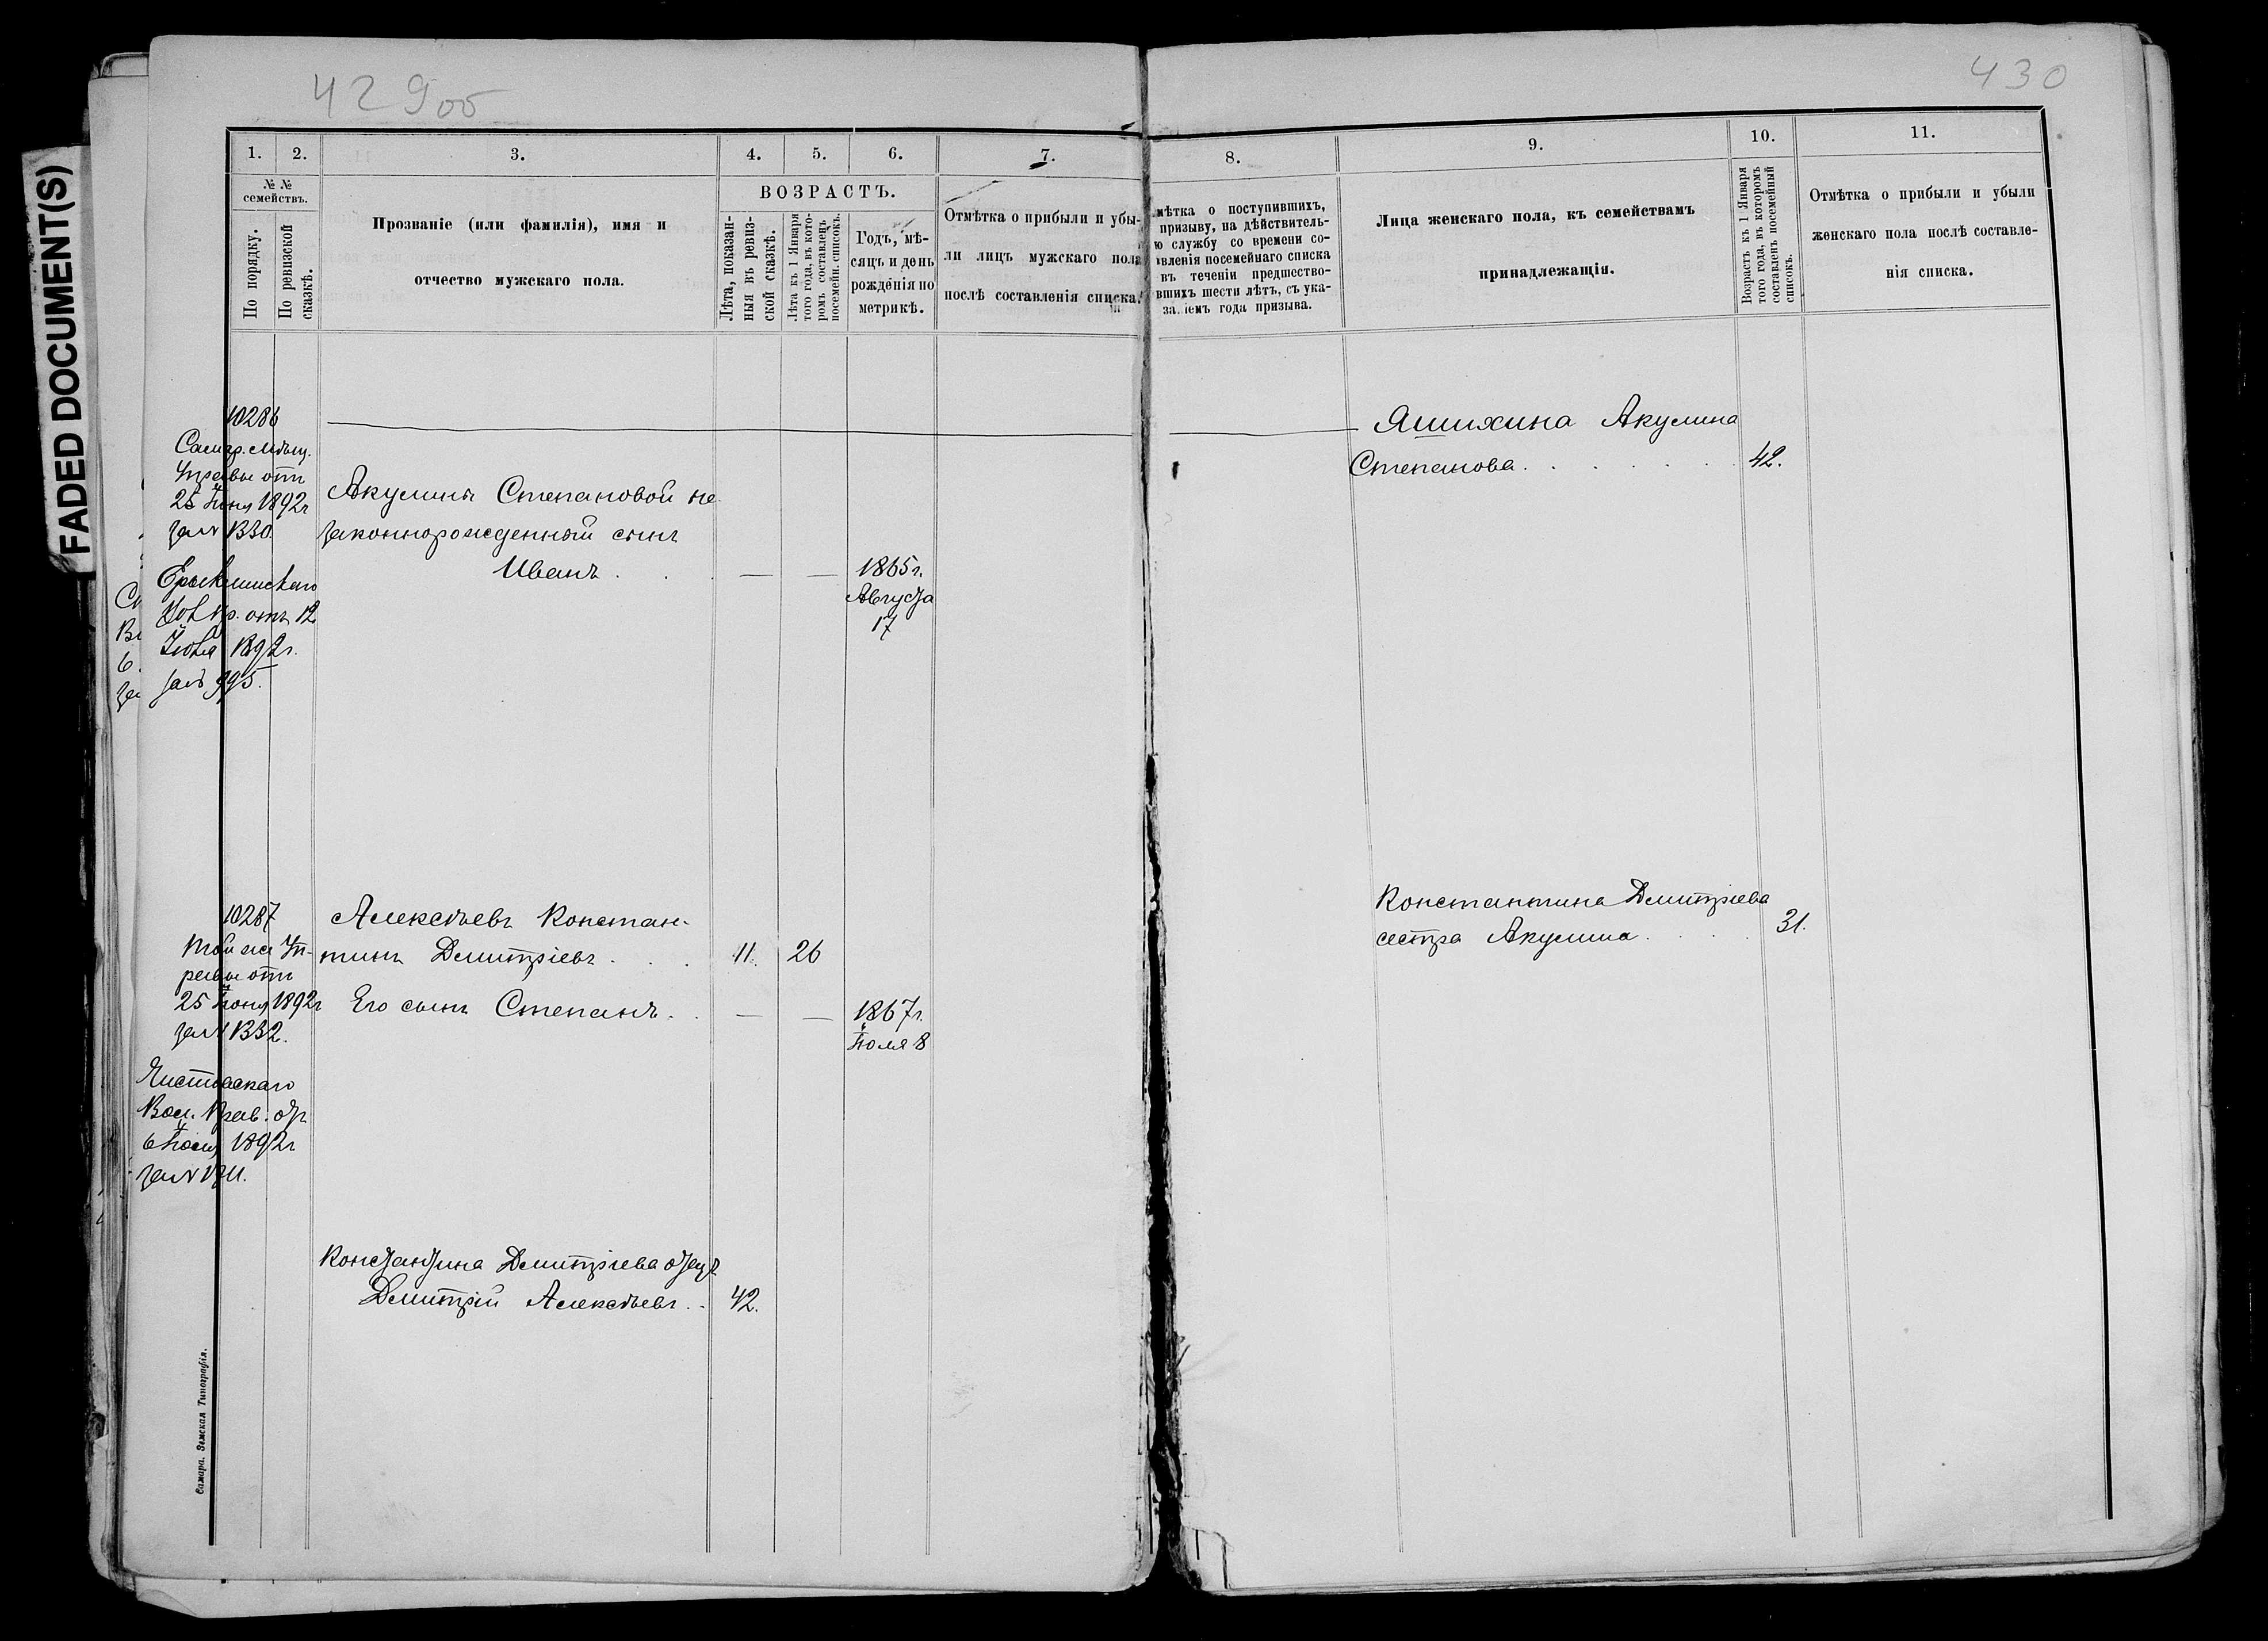 429об
430
FADED DOCUMENT(S)
1.
2.
3.
4.
5.
6.
7.
8.
9.
10.
11.
№ №
семействъ.
По порядку.
По ревизской
сказкѣ.
Прозваніе (или фамилія), имя и
отчество мужскаго пола.
ВОЗРАСТЪ.
Лѣта, показан-
ныя въ ревиз-
ской сказкѣ.
Лѣта къ 1 Января
того года, въ кото-
ромъ составленъ
посемейн. списокъ.
Годъ, мѣ-
сяцъ и день
рожденія по
метрикѣ.
Отмѣтка о прибыли и убы-
ли лицъ мужскаго пола
послѣ составленія списка.
мѣтка о поступившихъ,
призыву, на дѣйствитель-
ю службу со времени со-
вленія посемейнаго списка
въ теченіи предшество-
вшихъ шести лѣтъ, съ ука-
за іемъ года призыва.
Лица женскаго пола, къ семействамъ
принадлежащія.
Возрастъ къ 1 Января
того года, въ которомъ
составленъ посемейный
списокъ.
Отмѣтка о прибыли и убыли
женскаго пола послѣ составле-
нія списка.
10286
Самар. Мѣщ.
Управы отъ
25 Іюня 1892г
за № 1330.
отъ 12
Іюля 1892г.
за № 995.
Акулины Степановой не-
законнорожденный сынъ
Иванъ . . . — — 1865г.
Августа
17
Яшихина Акулина
Степанова . . . . . . 42.
10287
Той же Уп-
равы отъ
25 Іюня 1892г
за № 1332.
Вол. Прав. отъ
6 Іюня 1892г
за №
Алексѣевъ Констан-
тинъ Дмитріевъ . . . 11. 26
Его сынъ Степанъ . . — — 1867г.
Іюля 8
Константина Дмитріева отецъ
Дмитрій Алексѣевъ . . 42.
Константина Дмитріева
сестра Акулина . . . . 31.
Самара. Земская Типографія.